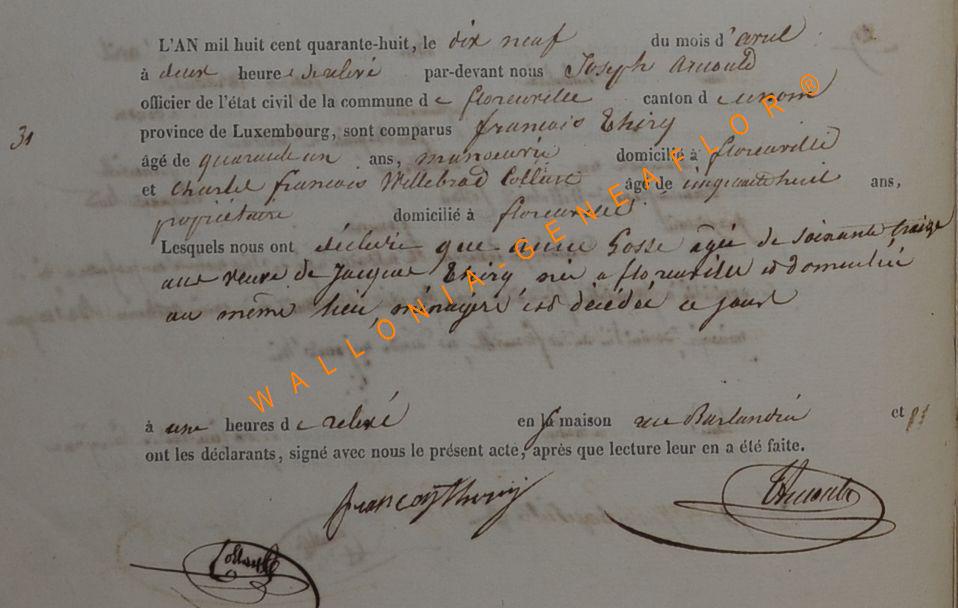 L'AN mil huit cent quarante-huit, le dix neuf du mois d'avril
à deux heures de relevé par-devant nous Joseph Arnould
officier de l'état civil de la commune de florenville canton d
province de Luxembourg, sont comparus francois Thiry
31
âgé de quarante un ans, manoeuvre domicilié à florenville
et Charles francois Willebrod Collard âgé de cinquante huit ans,
propriétaire domicilié à florenville
Lesquels nous ont déclaré que anne Gosse agée de soixante traize
ans veuve de Jacque Thiry née a florenville et domiciliée
au même lieu, ménagère est décédée ce jour
à une heures de relevé en sa maison rue et
ont les déclarants, signé avec nous le présent acte, après que lecture leur en a été faite.
francois Thiry Arnould
WALLONIA-GENEAFLOR®